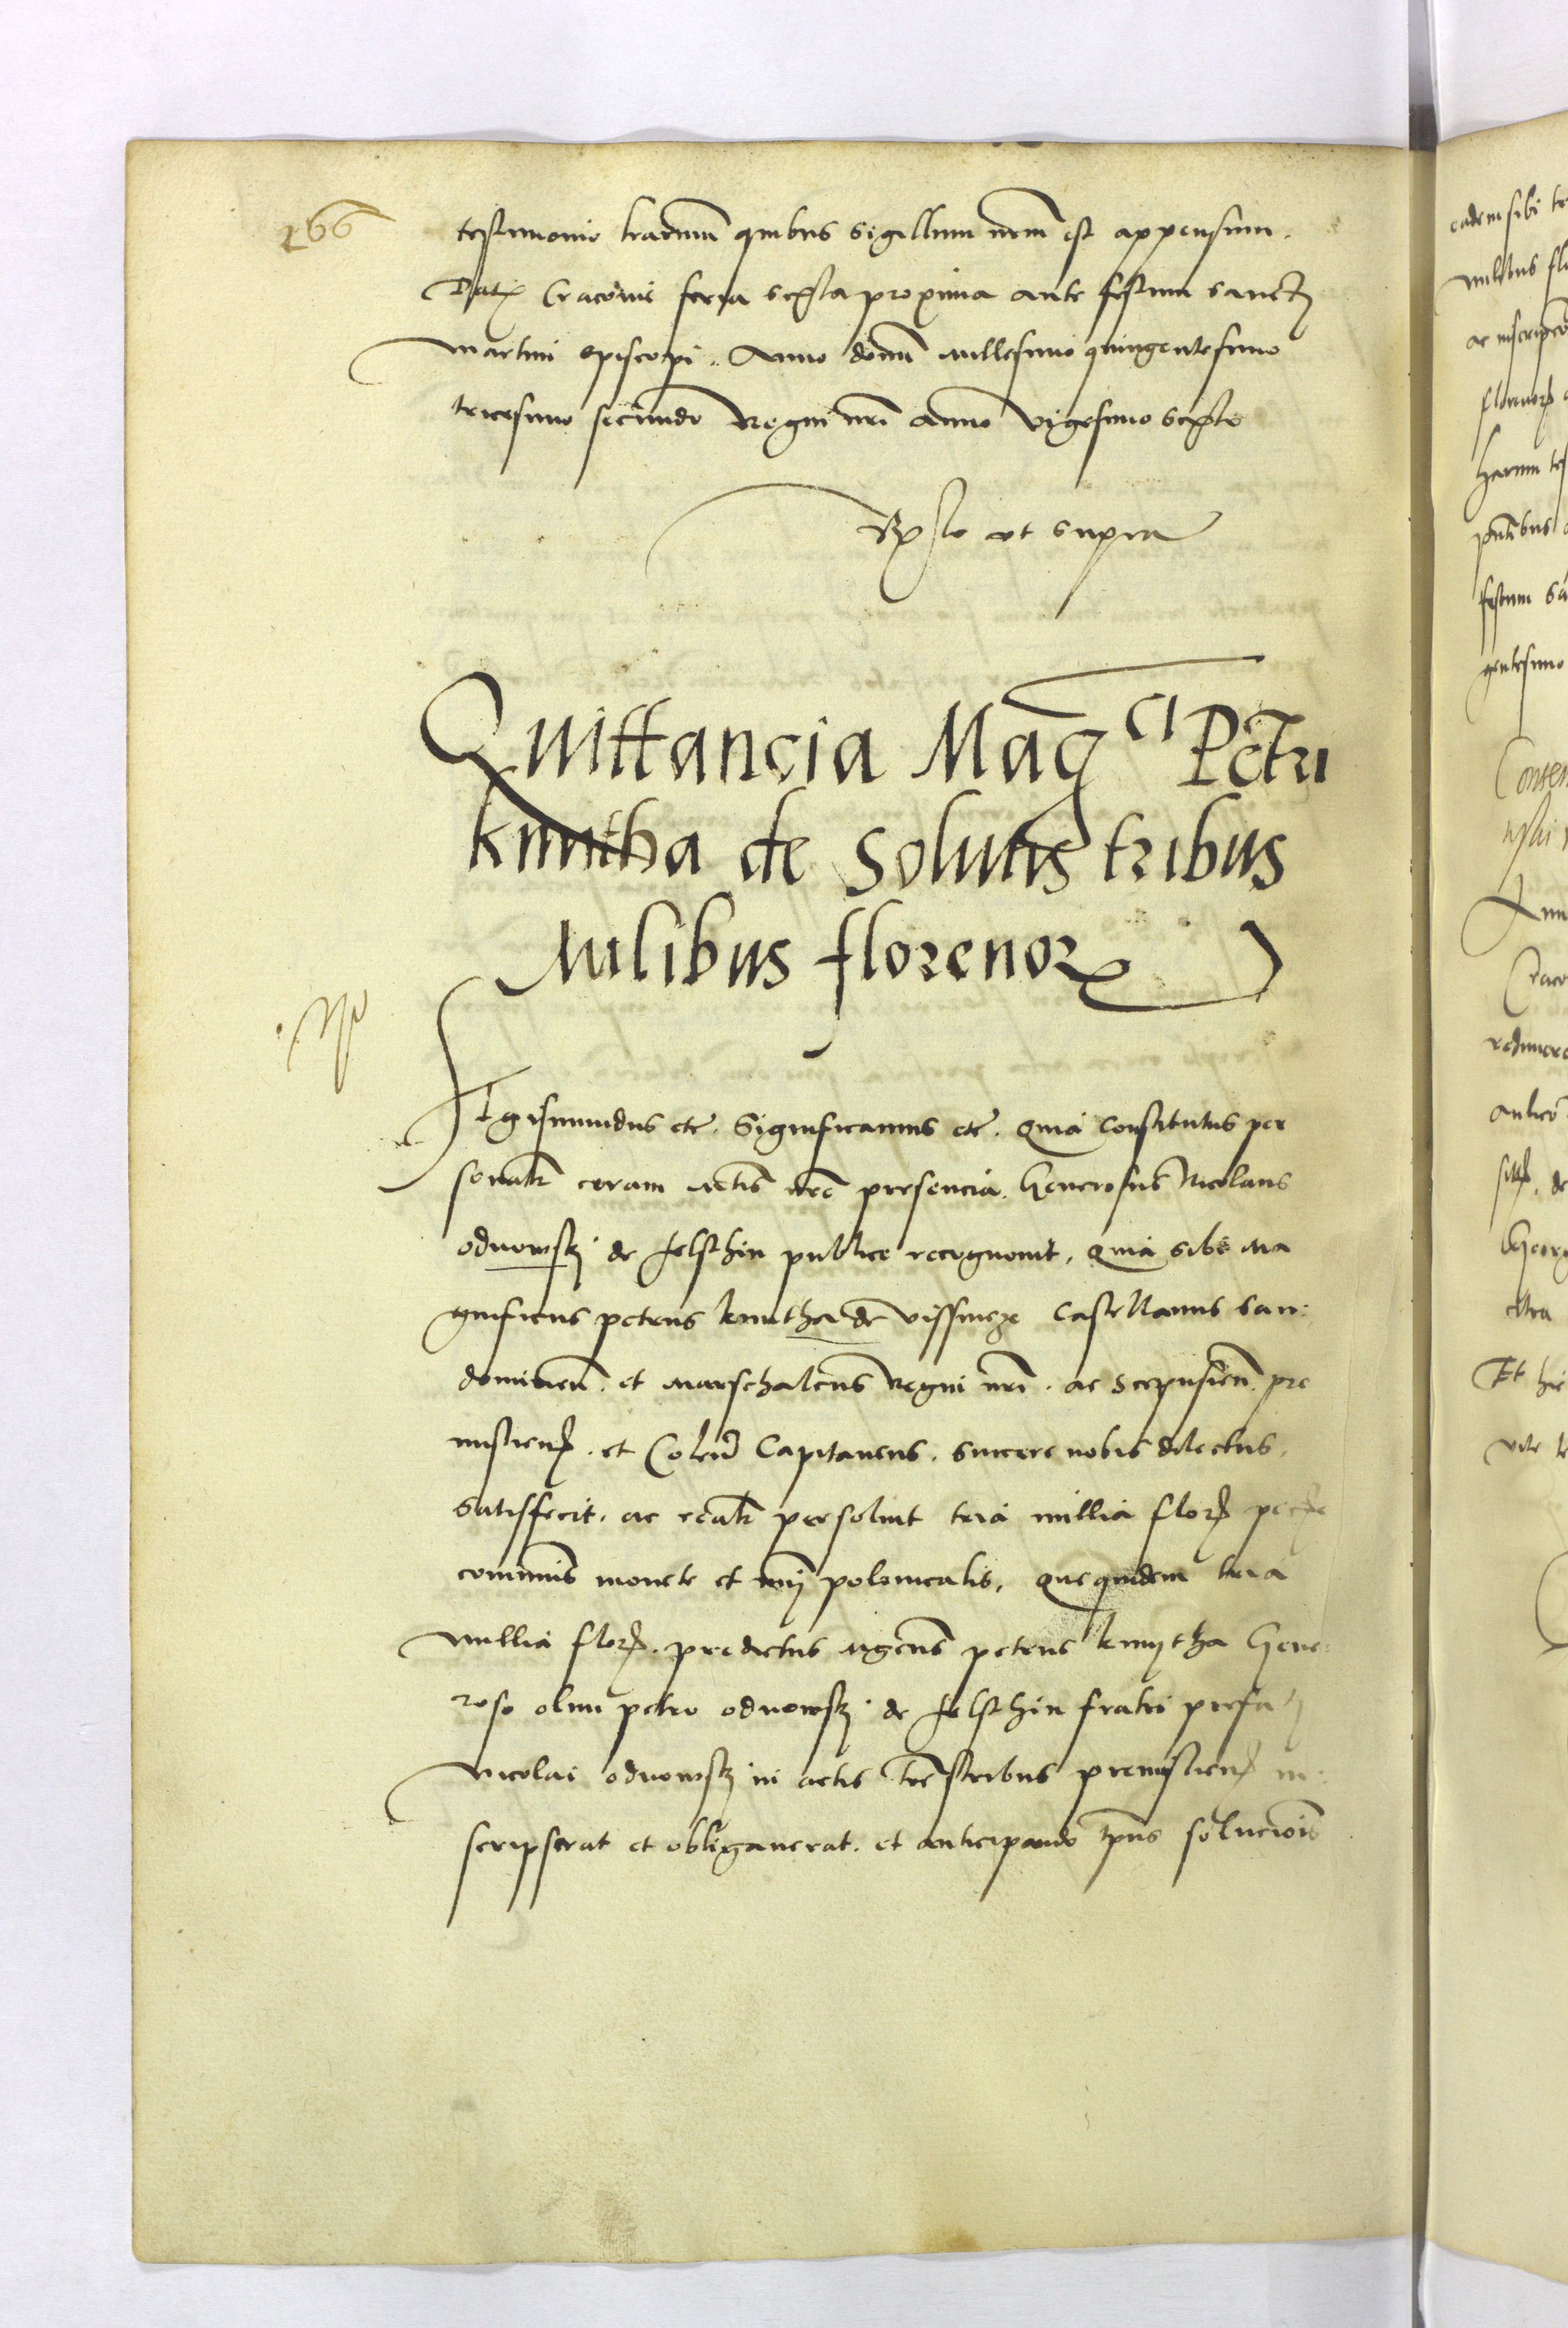 166
testimonio lrarum quibus sigillum nrm est appensum.
Dat Cracovie feria sexta proxima ante festum sancti
Martini episcopi. Anno domini millesimo quingentesimo
tricesimo secundo Regni nri anno vigesimo sexto
Rlo ut supra
Quittancia Mag ci Petri
kmitha de solutis tribus
Milibus florenor
Sigismundus etc. Significamus etc. Quia constitutus per
sonalr coram actis nre presencia. Generosus Nicolaus
odnowsky de felsthin publice recognouit, quia sibi ma
gnificus petrus kmitha de vissnicze Castellanus san:
domirien. et Marschalcus Regni nri. ac Scepusien. pre
mislien. et Colen Capitaneus. sincere nobis dilectus.
satisfecit. ac realr persoluit tria millia flor pecunie
communis monete et nri polonicalis, que quidem tria
millia flor. predictus mgcus petrus kmytha Gene:
roso olim petro odnowsky de felsthin fratri prefati
Nicolai odnowsky in actis terrestribus premislien in:
scripserat et obligauerat. et anticipando tpus solucionis
eadem sibi
ar inscripco
harum
festum
gentesimo
Consen
Et hic